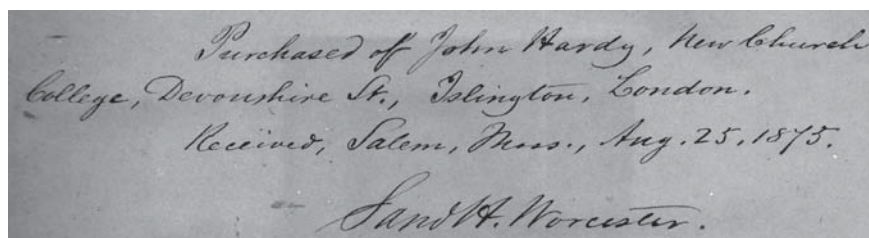 Purchased of John Hardy, New Church
College, Devonshire St., Islington, London.
Received, Salem, Mass., Aug. 25, 1875.
Saml H. Worcester.